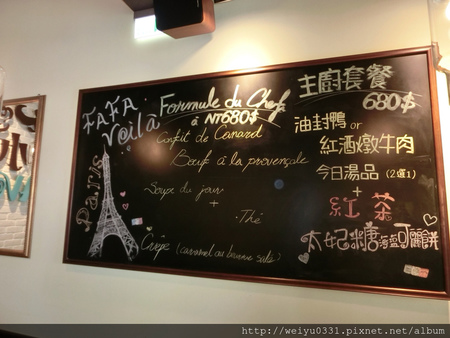 FAFA
Voilà
Paris
Formule du Chef
à NT680$
Confit de Canard
Bœuf à la provençale
Soupe du jour
+
·Thé
Crêpe (caramel au beurre salé)
主廚套餐
680$
油封鴨 or
紅酒燉牛肉
今日湯品 (2選1)
+
紅茶
太妃糖海鹽可麗餅
http://weiyu0331.pixnet.net/album